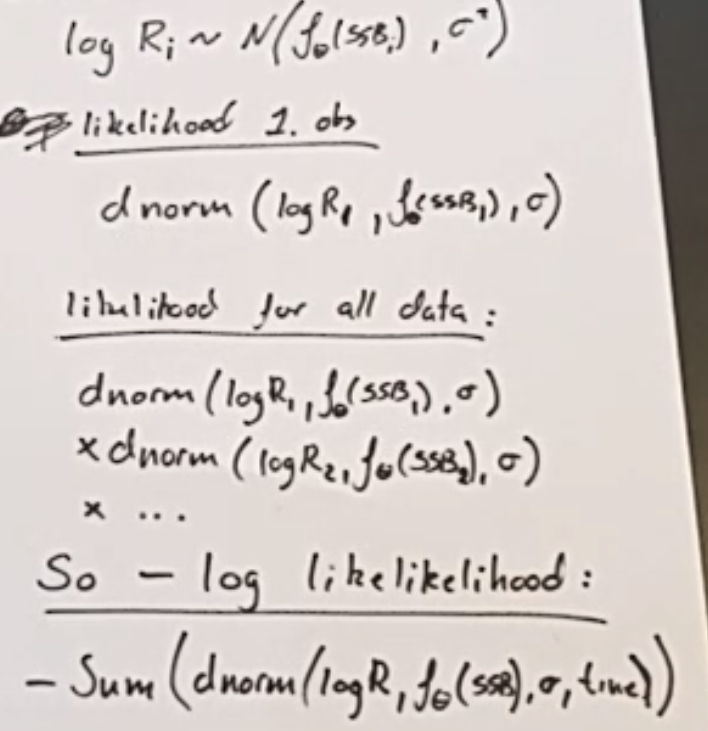 log Ri ~ N(fθ(SSBi), σ²)
likelihood 1. obs
dnorm (log R1, fθ(SSB1), σ)
likelihood for all data:
dnorm (log R1, fθ(SSB1), σ)
x dnorm (log R2, fθ(SSB2), σ)
x ...
So - log likelikelihood:
- Sum (dnorm (log R, fθ(SSB), σ, true))